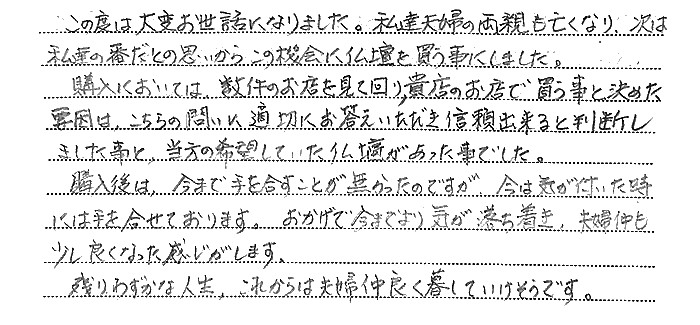 この度は大変お世話になりました。私達夫婦の両親も亡くなり、次は
私達の番だとの思いからこの機会に仏壇を買う事にしました。
購入においては、数件のお店を見て回り、貴店のお店で買う事と決めた
要因は、こちらの問いに適切にお答えいただき信頼出来ると判断し
ました事と、当方の希望していた仏壇があった事でした。
購入後は、今まで手を合すことが無かったのですが、今は気が付いた時
には手を合せております。おかげで今までより気が落ち着き、夫婦仲も
少し良くなった感じがします。
残りわずかな人生、これからは夫婦仲良く暮していけそうです。